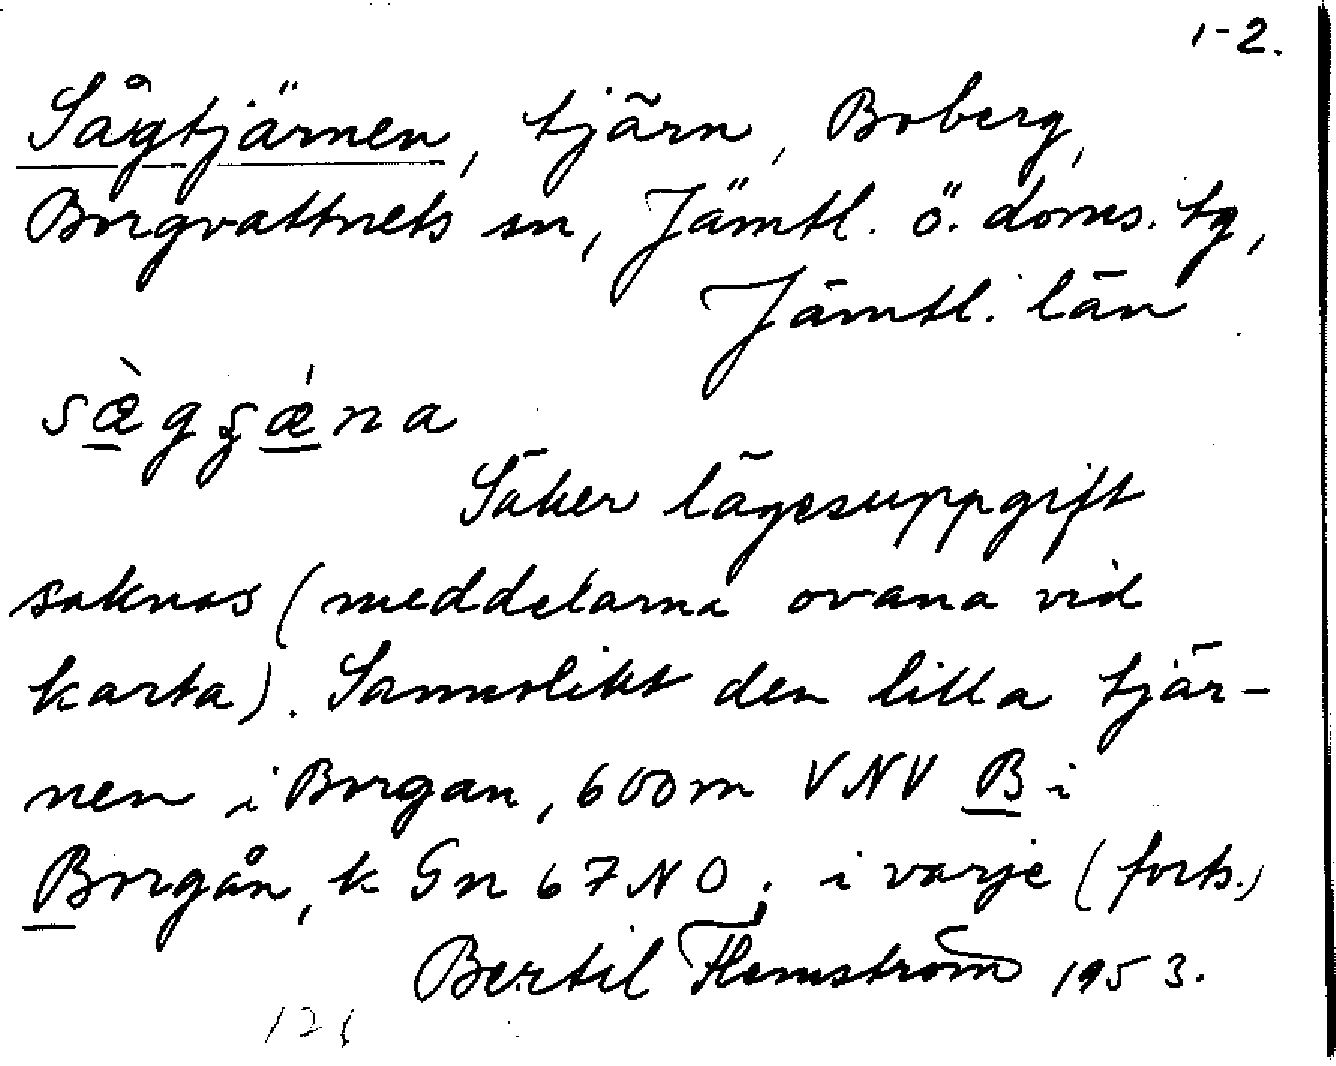 1-2.
Sågtjärnen, tjärn, Boberg,
Borgvattnets sn, Jämtl. ö. doms. tg,
Jämtl. län
Säker lägesuppgift
saknas (meddelarna ovana vid
karta). Sannolikt den lilla tjär-
nen i Borgan, 600m VNV B i
Borgån, k Gn 67 NO; i varje (forts.)
Bertil Flemström 1953.